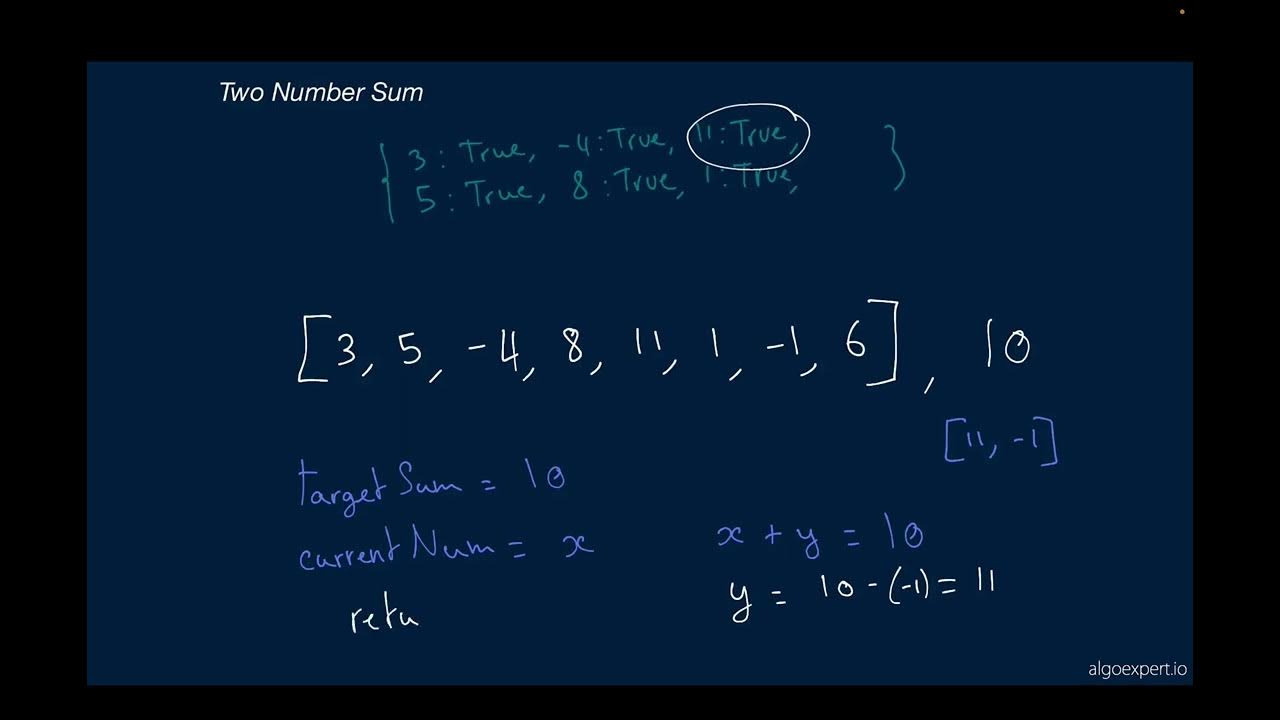 Two Number Sum
{ 3 : True, -4 : True, 11 : True,
5 : True, 8 : True, 1 : True, }
[3, 5, -4, 8, 11, 1, -1, 6], 10
[11, -1]
targetSum = 10
currentNum = x
x + y = 10
y = 10 - (-1) = 11
retu
algoexpert.io